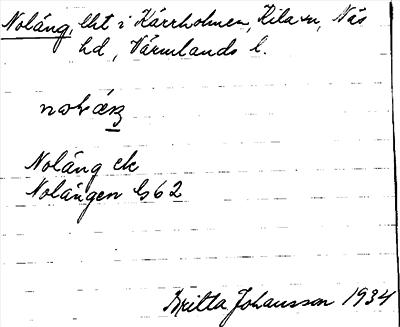 Nolång, lht i Kärrholmen, Kila sn, Näs
hd, Värmlands l.
Nolång ek
Nolången G62
Britta Johansson 1934